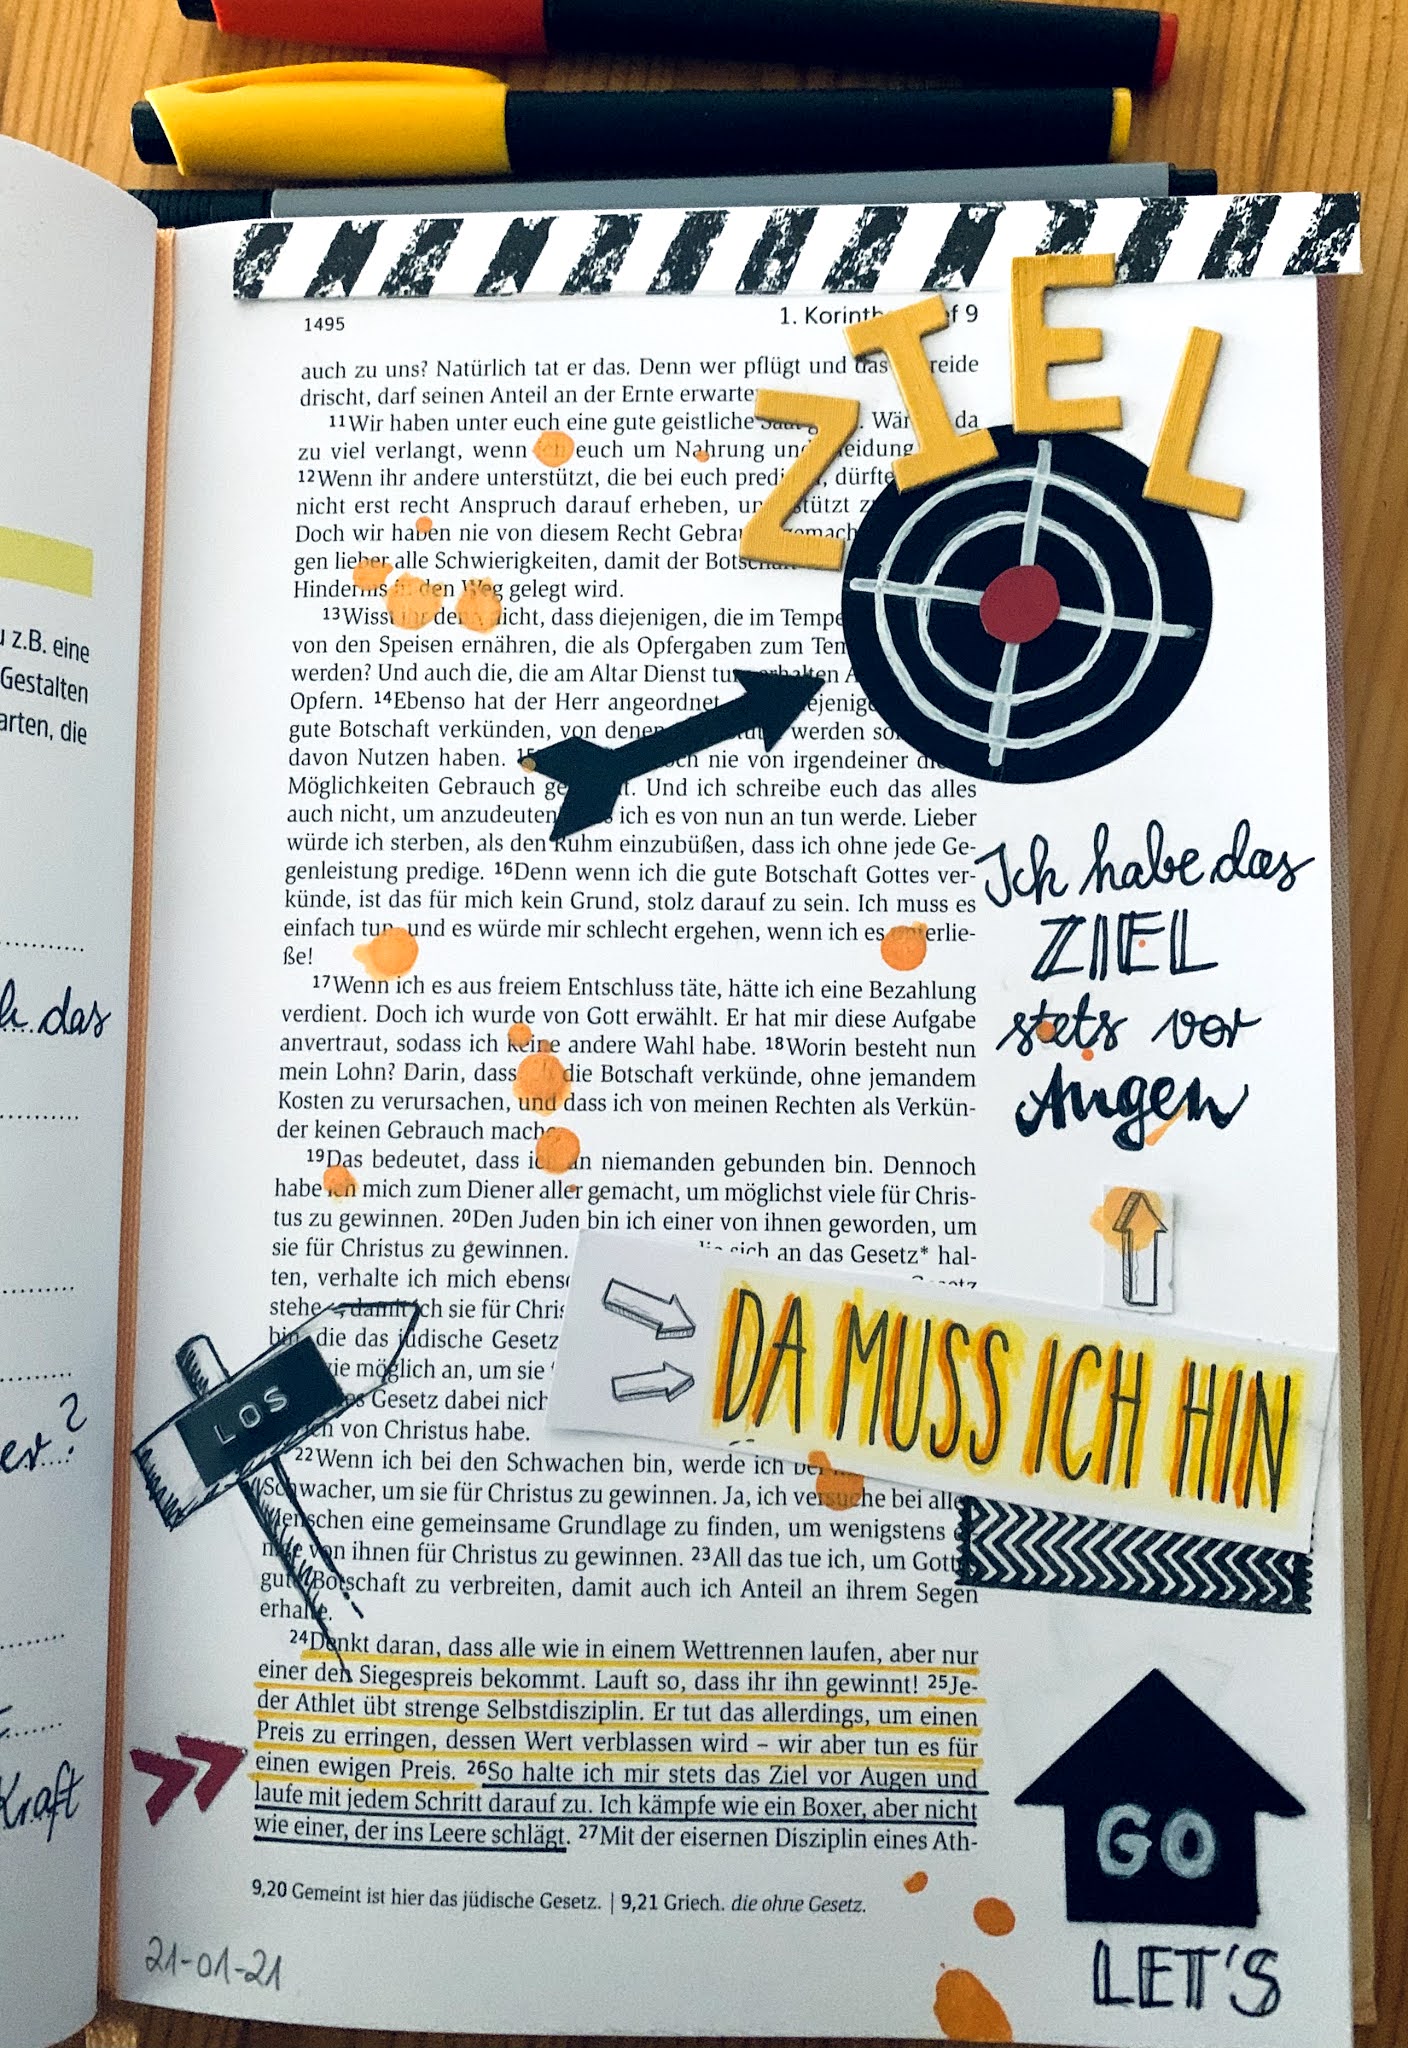 u z.B. eine
Gestalten
arten, die
das
Kraft
1495
1. Korinth f 9
ZIEL
auch zu uns? Natürlich tat er das. Denn wer pflügt und das reide
drischt, darf seinen Anteil an der Ernte erwarte
11Wir haben unter euch eine gute geistliche . Wär da
zu viel verlangt, wenn euch um Nahrung und leidung
12Wenn ihr andere unterstützt, die bei euch predi , dürfte
nicht erst recht Anspruch darauf erheben, un stützt z
Doch wir haben nie von diesem Recht Gebra gemach
gen lieber alle Schwierigkeiten, damit der Bots
Hindernis in den Weg gelegt wird.
13Wisst ihr denn nicht, dass diejenigen, die im Tempe
von den Speisen ernähren, die als Opfergaben zum Tem
werden? Und auch die, die am Altar Dienst tun, erhalten A
Opfern. 14Ebenso hat der Herr angeordnet ejenige
gute Botschaft verkünden, von denen werden so
davon Nutzen haben. 15 och nie von irgendeiner die
Möglichkeiten Gebrauch ge t. Und ich schreibe euch das alles
auch nicht, um anzudeuten s ich es von nun an tun werde. Lieber
würde ich sterben, als den Ruhm einzubüßen, dass ich ohne jede Ge-
genleistung predige. 16Denn wenn ich die gute Botschaft Gottes ver-
künde, ist das für mich kein Grund, stolz darauf zu sein. Ich muss es
einfach tun, und es würde mir schlecht ergehen, wenn ich es unterlie-
ße!
17Wenn ich es aus freiem Entschluss täte, hätte ich eine Bezahlung
verdient. Doch ich wurde von Gott erwählt. Er hat mir diese Aufgabe
anvertraut, sodass ich keine andere Wahl habe. 18Worin besteht nun
mein Lohn? Darin, dass ich die Botschaft verkünde, ohne jemandem
Kosten zu verursachen, und dass ich von meinen Rechten als Verkün-
der keinen Gebrauch mache.
19Das bedeutet, dass ich an niemanden gebunden bin. Dennoch
habe ich mich zum Diener aller gemacht, um möglichst viele für Chris-
tus zu gewinnen. 20Den Juden bin ich einer von ihnen geworden, um
sie für Christus zu gewinnen. die sich an das Gesetz* hal-
ten, verhalte ich mich ebens Gesetz
stehe, damit ich sie für Chris
bin, die das jüdische Gesetz
wie möglich an, um sie
es Gesetz dabei nich
ich von Christus habe.
22Wenn ich bei den Schwachen bin, werde ich
Schwacher, um sie für Christus zu gewinnen. Ja, ich versuche bei alle
Menschen eine gemeinsame Grundlage zu finden, um wenigstens
von ihnen für Christus zu gewinnen. 23All das tue ich, um Gott
gute Botschaft zu verbreiten, damit auch ich Anteil an ihrem Segen
erhalte.
24Denkt daran, dass alle wie in einem Wettrennen laufen, aber nur
einer den Siegespreis bekommt. Lauft so, dass ihr ihn gewinnt! 25Je-
der Athlet übt strenge Selbstdisziplin. Er tut das allerdings, um einen
Preis zu erringen, dessen Wert verblassen wird – wir aber tun es für
einen ewigen Preis. 26So halte ich mir stets das Ziel vor Augen und
laufe mit jedem Schritt darauf zu. Ich kämpfe wie ein Boxer, aber nicht
wie einer, der ins Leere schlägt. 27Mit der eisernen Disziplin eines Ath-
9,20 Gemeint ist hier das jüdische Gesetz. | 9,21 Griech. die ohne Gesetz.
21-01-21
Ich habe das
ZIEL
stets vor
Augen
DA MUSS ICH HIN
LOS
GO
LET'S